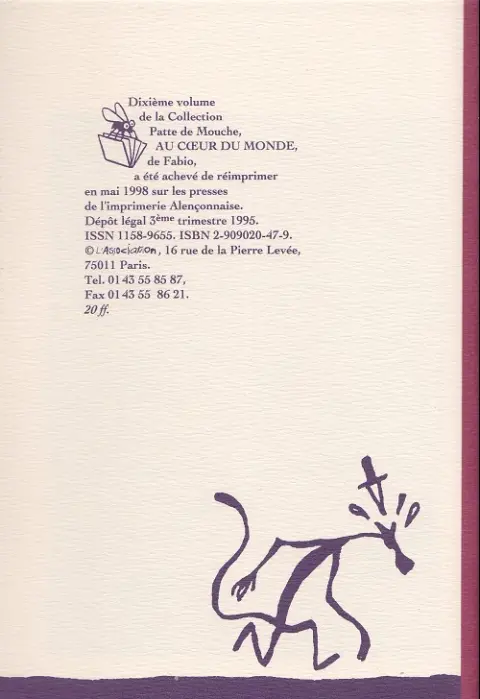 Dixième volume
de la Collection
Patte de Mouche,
AU CŒUR DU MONDE,
de Fabio,
a été achevé de réimprimer
en mai 1998 sur les presses
de l'imprimerie Alençonnaise.
Dépôt légal 3ème trimestre 1995.
ISSN 1158-9655. ISBN 2-909020-47-9.
© L'Association, 16 rue de la Pierre Levée,
75011 Paris.
Tel. 01 43 55 85 87,
Fax 01 43 55 86 21.
20 ff.